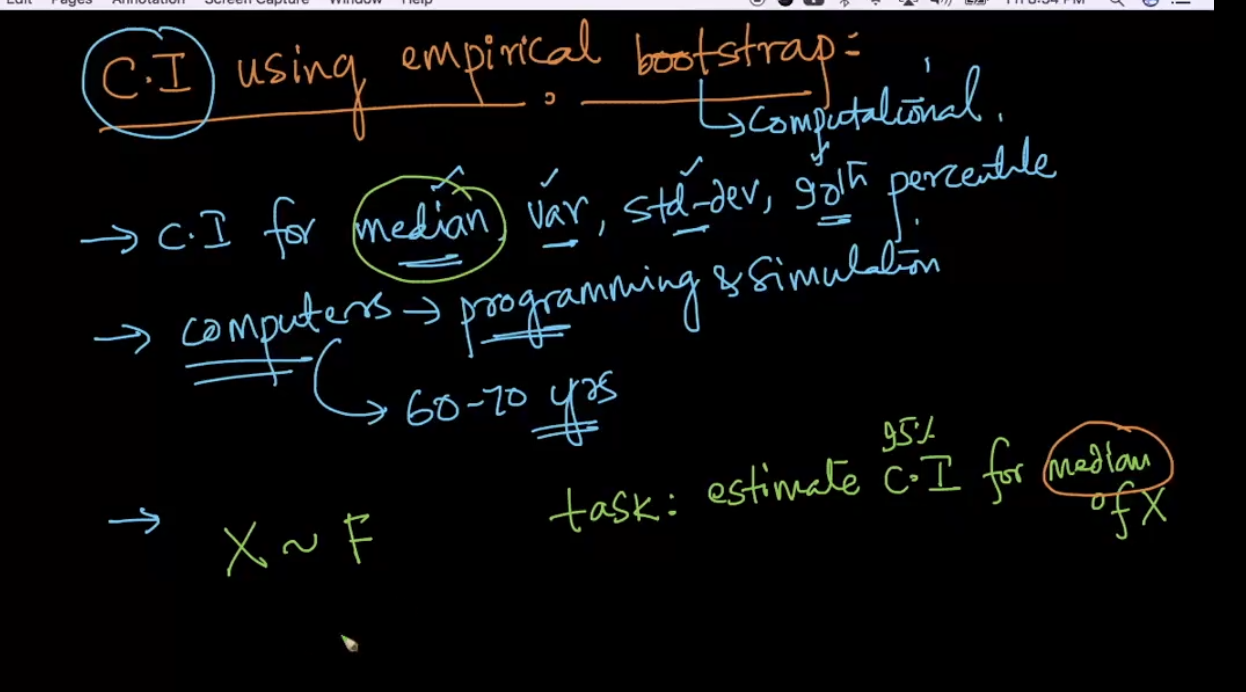 Edit Pages Annotation Screen Capture Window Help
C.I using empirical bootstrap:
↳ computational.
→ C.I for median, var, std-dev, 90th percentile
→ computers → programming & simulation
↳ 60-70 yrs
95%
task: estimate C.I for median of X
→ X ~ F